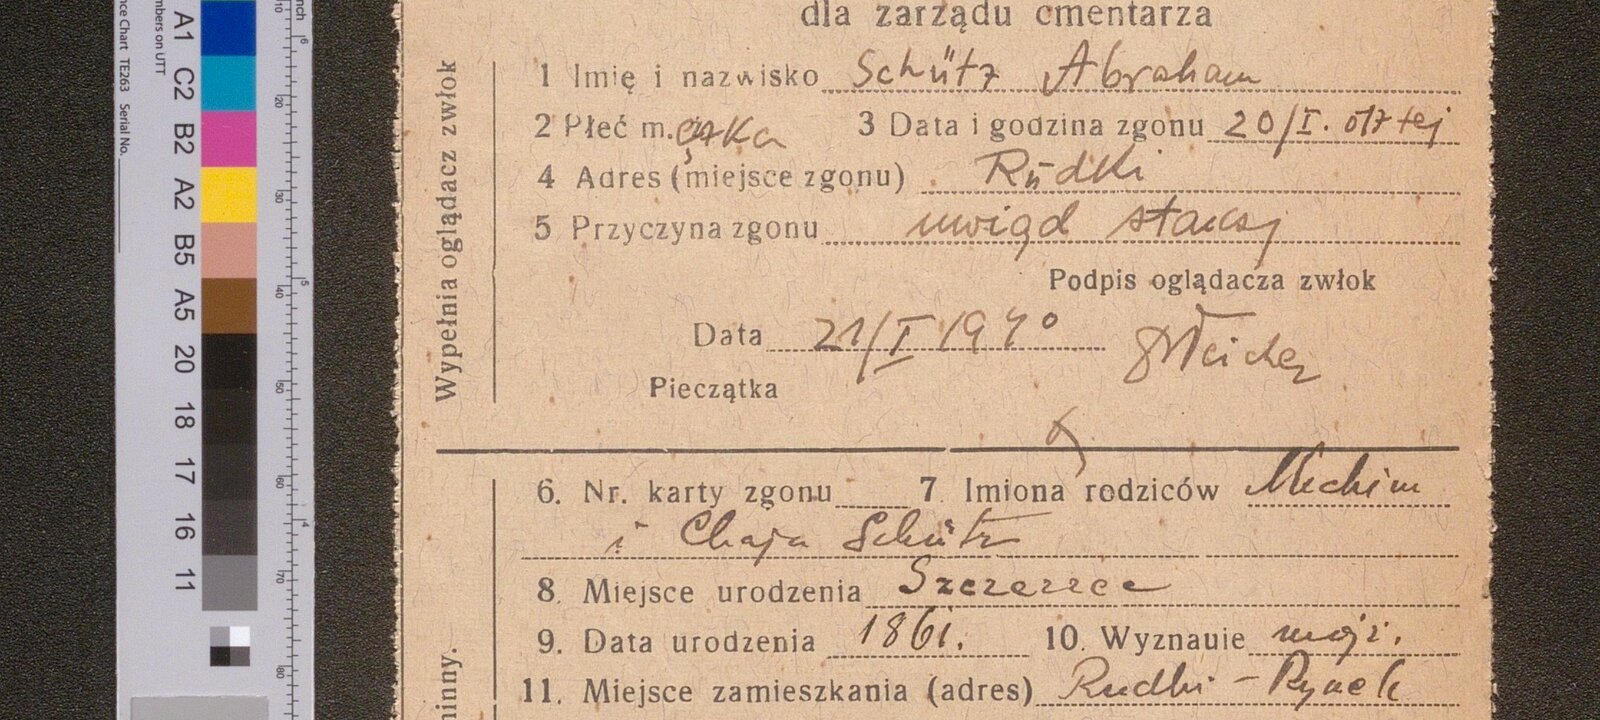 dla zarządu cmentarza
1 Imię i nazwisko Schütz Abraham
2 Płeć m.ęska 3 Data i godzina zgonu 20/I. o 17 tej
4 Adres (miejsce zgonu) Rudki
5 Przyczyna zgonu uwiąd starczy
Podpis oglądacza zwłok
Data 21/I 1940
Pieczątka
Wypełnia oglądacz zwłok
6. Nr. karty zgonu 7. Imiona rodziców
i Chaja Schütz
8. Miejsce urodzenia Szczerzec
9. Data urodzenia 1861. 10. Wyznanie mojż.
11. Miejsce zamieszkania (adres) Rudki - Rynek
minny.
nce Chart TE263 Serial No.
mbers on UTT
A1 C2 B2 A2 B5 A5 20 18 17 16 11
nch
10 20 30 40 50 60 70 80
6 5 4